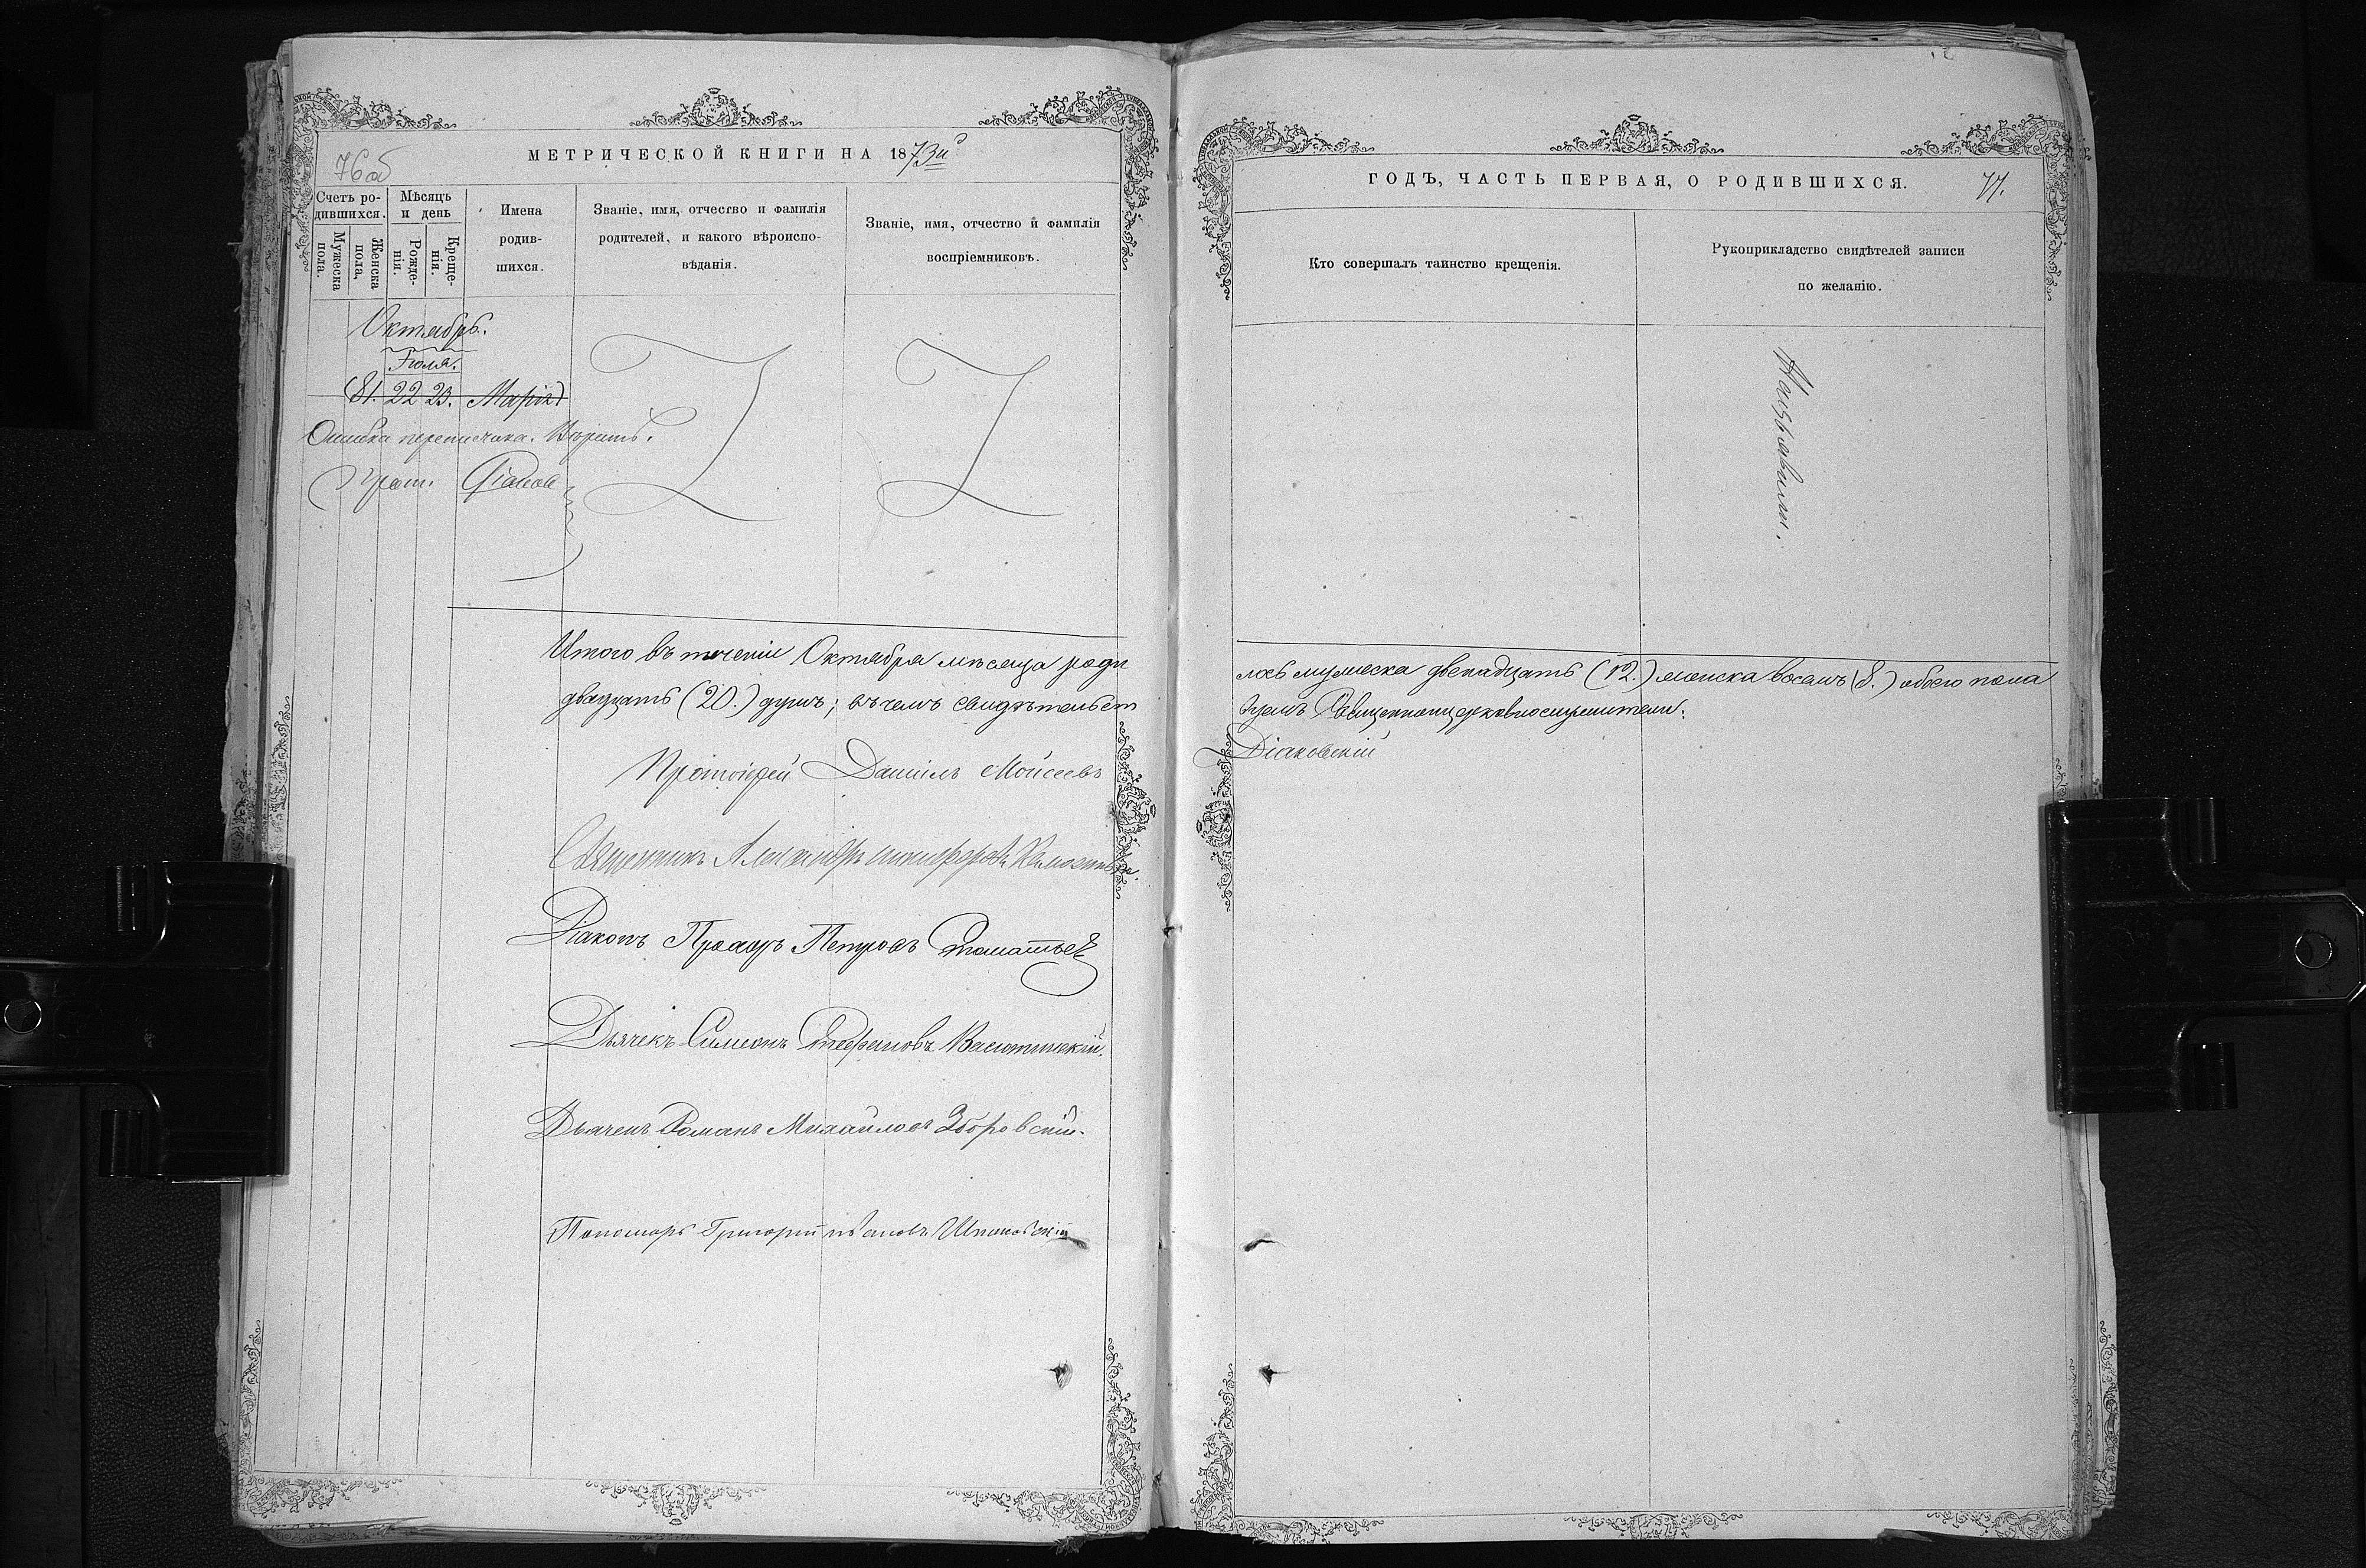 76об
МЕТРИЧЕСКОЙ КНИГИ НА 1873й
Счетъ ро-
дившихся.
Мужеска
пола.
Женска
пола.
Мѣсяцъ
и день
Рожде-
нія.
Креще-
нія.
Имена
родив-
шихся.
Званіе, имя, отчество и фамилія
родителей, и какого вѣроиспо-
вѣданія.
Званіе, имя, отчество и фамилія
воспріемниковъ.
Октябрь.
Іюля.
81. 22 23. Марія
Ошибка переписчика. Вѣрить.
Прот. Діаков
Итого въ теченіи Октября мѣсяца роди
двадцать (20.) душъ; въ чемъ свидѣтельст
Протоіерей Даніилъ Моисеевъ
Священникъ Александръ
Діаконъ Прохоръ Петровъ
Дьячекъ Симеонъ Стефановъ
Дьячекъ Романъ Михайловъ Зборовскій.
Пономарь Григорій Ивановъ
ГОДЪ, ЧАСТЬ ПЕРВАЯ, О РОДИВШИХСЯ.
77.
Кто совершалъ таинство крещенія.
Рукоприкладство свидѣтелей записи
по желанію.
лось мужеска двенадцать (12.) женска восемъ (8.) обоего пола
вуемъ Священноцерковнослужители:
Діаковскій